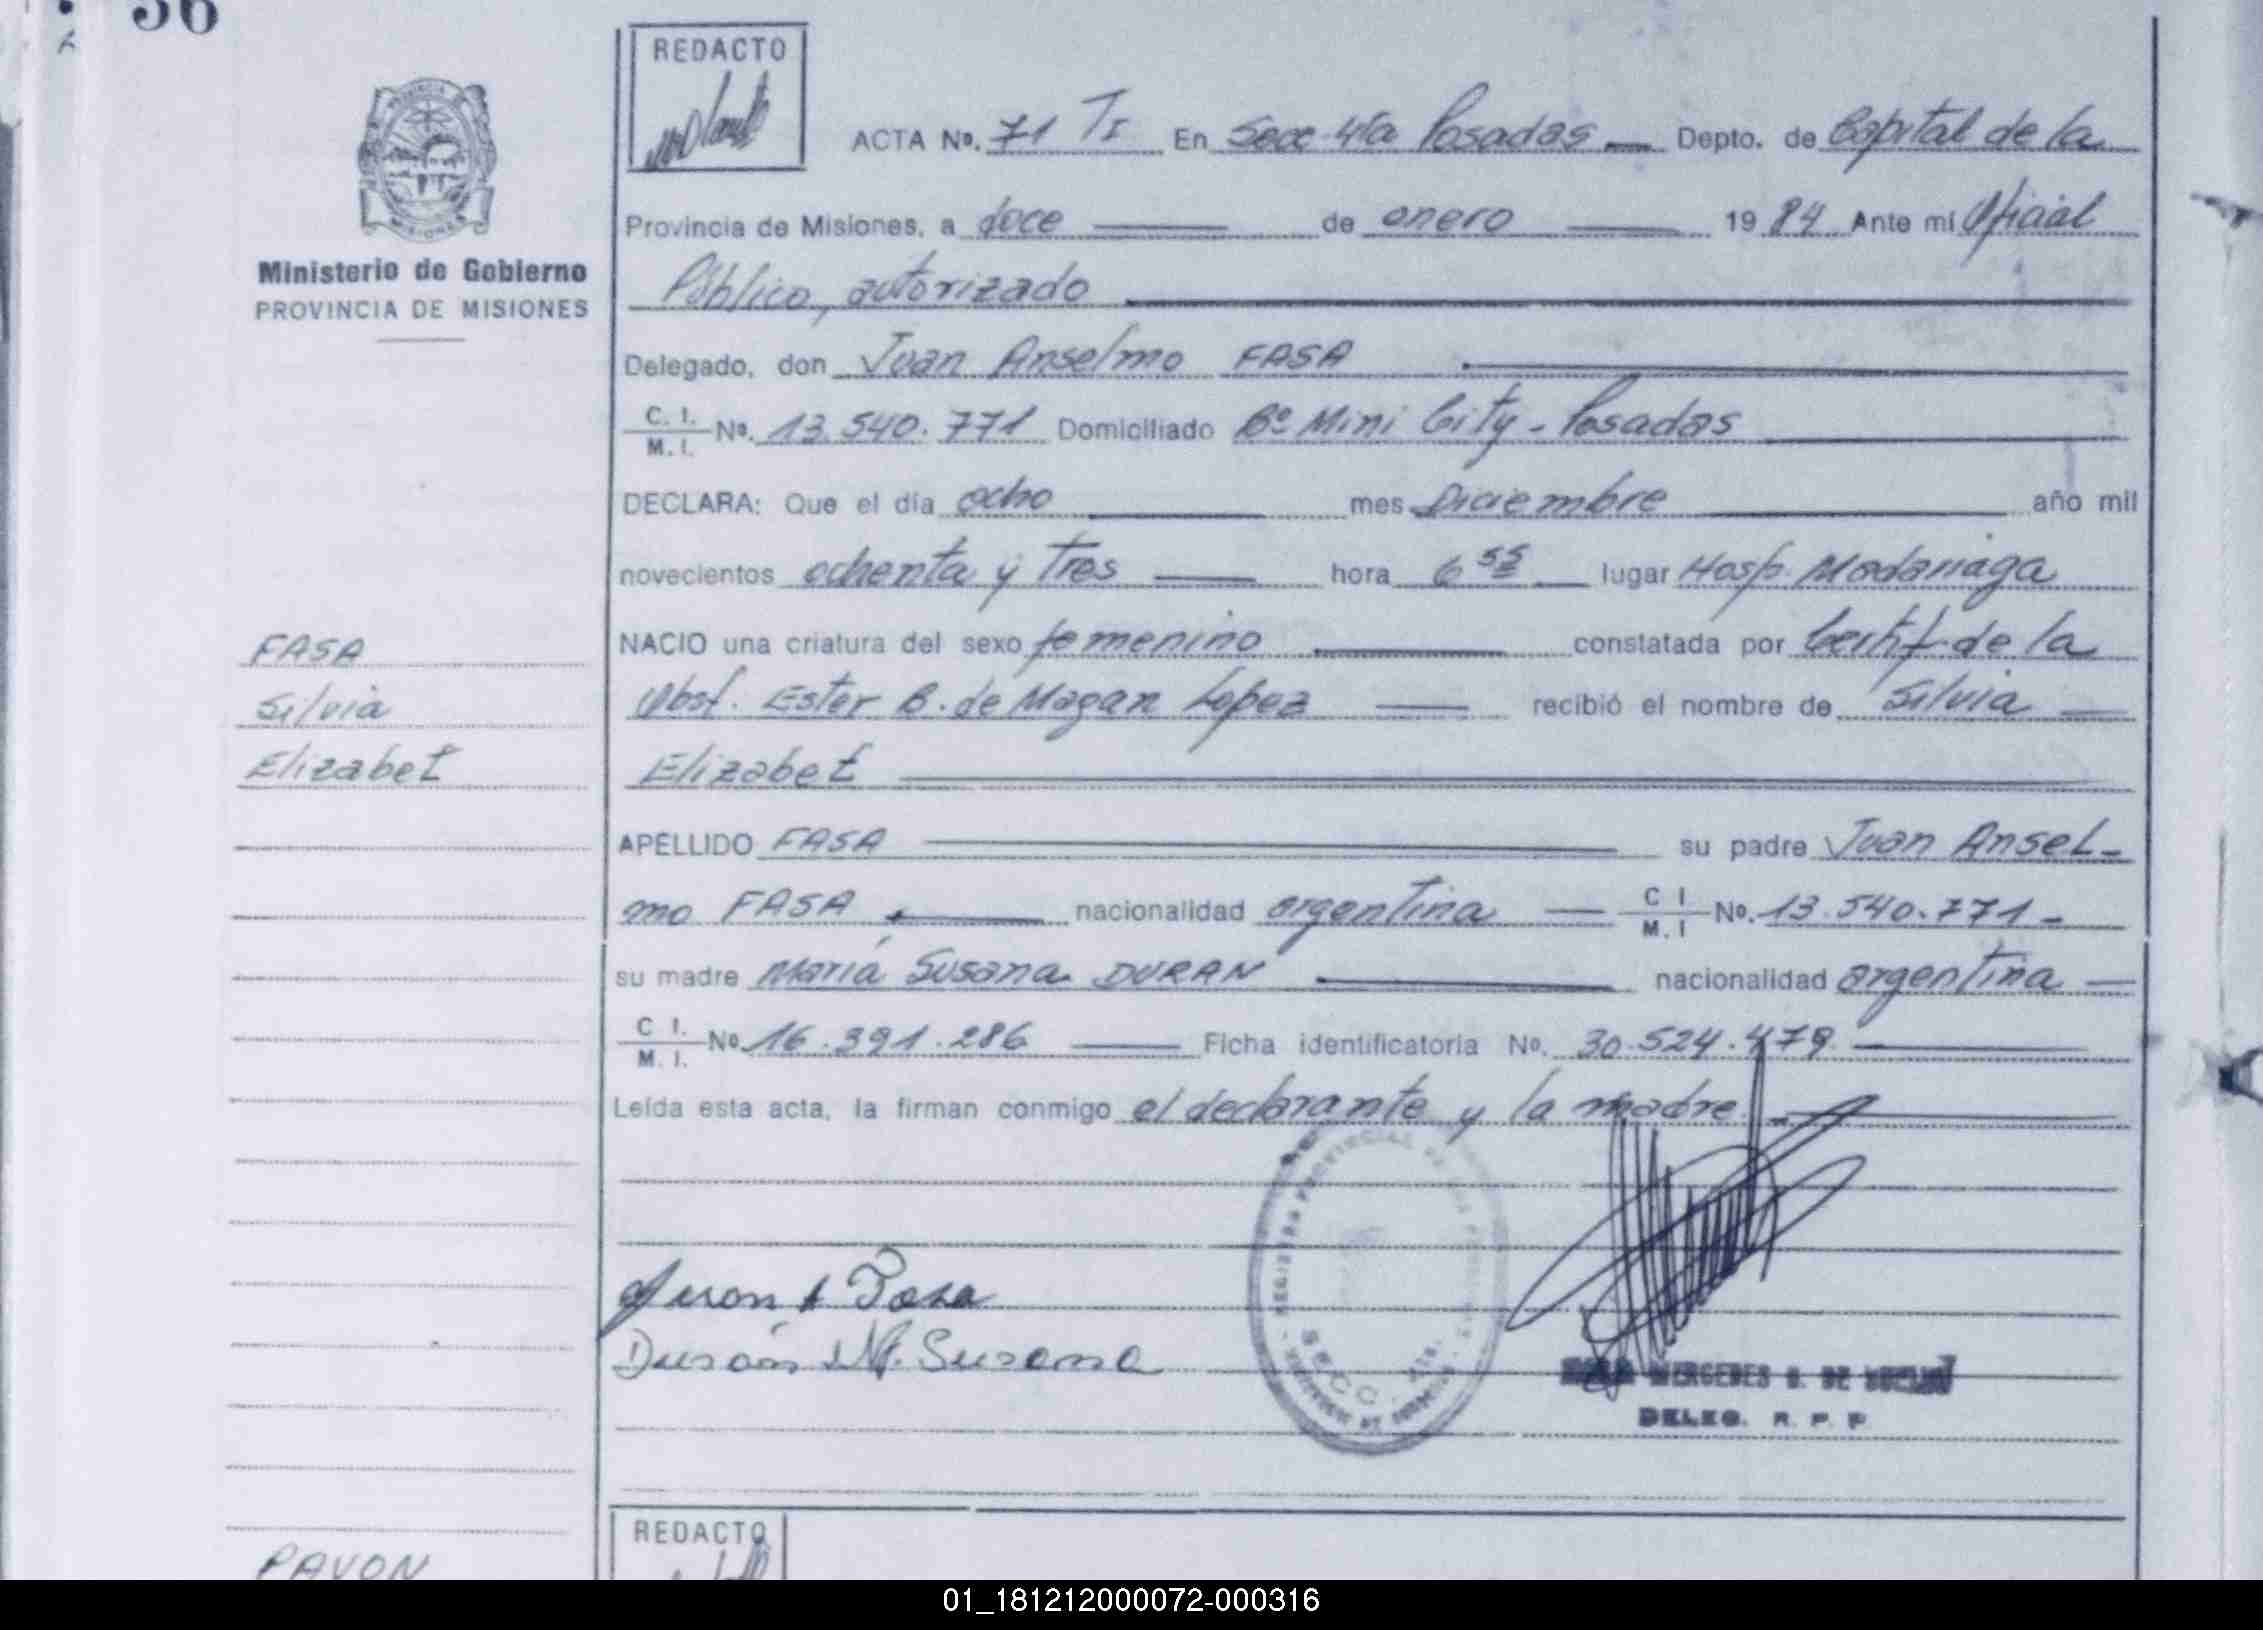 36
REDACTO
ACTA Nº. 71 TI En Secc 4ta Posadas Depto. de Capital de la
Provincia de Misiones, a doce de enero 1984 Ante mí Oficial
Ministerio de Gobierno
PROVINCIA DE MISIONES
Público, autorizado
Delegado, don Juan Anselmo FASA
C. I. M. I. Nº. 13.540.771 Domiciliado Bº Mini City - Posadas
DECLARA: Que el día ocho mes Diciembre año mil
novecientos ochenta y tres hora 6 55 lugar Hosp. Madariaga
FASA
NACIO una criatura del sexo femenino constatada por Certif de la
Silvia
Obst. Ester B. de Magan Lopez recibió el nombre de Silvia
Elizabet
Elizabet
APELLIDO FASA su padre Juan Ansel-
mo FASA nacionalidad argentina C I M. I Nº. 13.540.771 -
su madre María Susana DURAN nacionalidad argentina
C I. M. I. Nº 16.391.286 Ficha identificatoria No. 30.524.479
Leída esta acta, la firman conmigo el declarante y la madre
Juan A Fasa
Durán M. Susana
REGISTRO PROVINCIAL DE LAS PERSONAS
SECC. 4ta.
MERCEDES
DELEG. R. P. P
REDACTO
PAVON
01_181212000072-000316